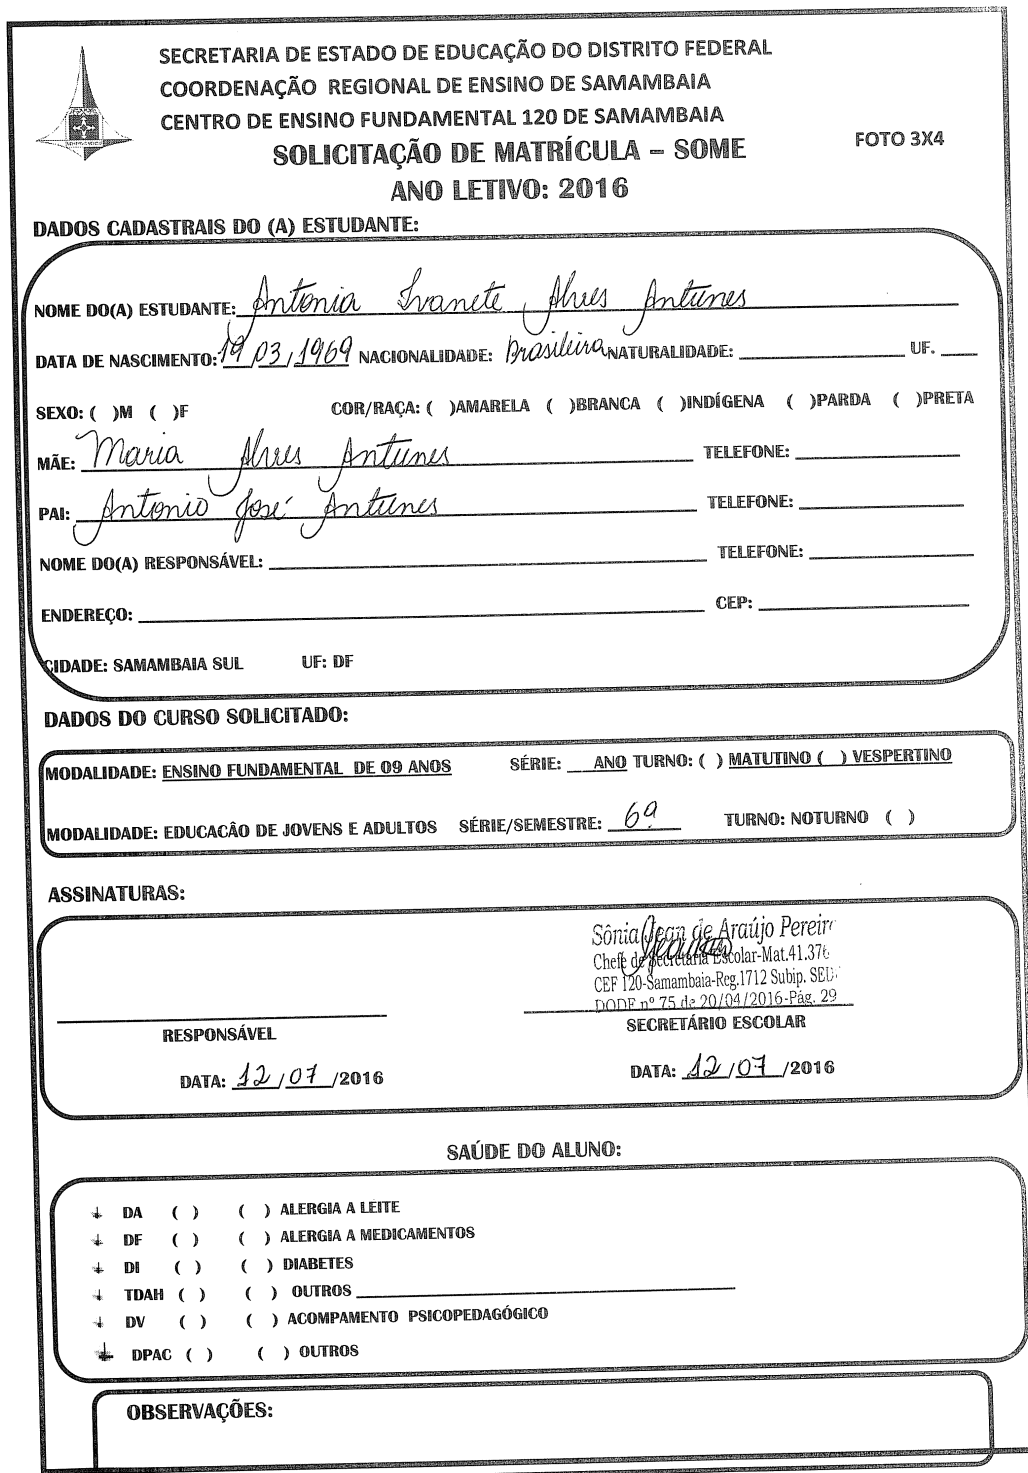 SECRETARIA DE ESTADO DE EDUCAÇÃO DO DISTRITO FEDERAL
COORDENAÇÃO REGIONAL DE ENSINO DE SAMAMBAIA
CENTRO DE ENSINO FUNDAMENTAL 120 DE SAMAMBAIA
SOLICITAÇÃO DE MATRÍCULA – SOME
FOTO 3X4
ANO LETIVO: 2016
DADOS CADASTRAIS DO (A) ESTUDANTE:
NOME DO(A) ESTUDANTE: Antonia Ivanete Alves Antunes
DATA DE NASCIMENTO: 19/03/1969 NACIONALIDADE: Brasileira NATURALIDADE: ____ UF. ____
SEXO: ( )M ( )F COR/RAÇA: ( )AMARELA ( )BRANCA ( )INDÍGENA ( )PARDA ( )PRETA
MÃE: Maria Alves Antunes TELEFONE: ____
PAI: Antonio José Antunes TELEFONE: ____
NOME DO(A) RESPONSÁVEL: ____ TELEFONE: ____
ENDEREÇO: ____ CEP: ____
CIDADE: SAMAMBAIA SUL UF: DF
DADOS DO CURSO SOLICITADO:
MODALIDADE: ENSINO FUNDAMENTAL DE 09 ANOS SÉRIE: ___ANO TURNO: ( ) MATUTINO ( ) VESPERTINO
MODALIDADE: EDUCACÂO DE JOVENS E ADULTOS SÉRIE/SEMESTRE: 6ª TURNO: NOTURNO ( )
ASSINATURAS:
Sônia Jean de Araújo Pereira
Chefe de Secretaria Escolar-Mat.41.376
CEF 120-Samambaia-Reg.1712 Subip. SED
DODF nº 75 de 20/04/2016-Pág. 29
RESPONSÁVEL SECRETÁRIO ESCOLAR
DATA: 12/07/2016 DATA: 12/07/2016
SAÚDE DO ALUNO:
DA ( ) ( ) ALERGIA A LEITE
DF ( ) ( ) ALERGIA A MEDICAMENTOS
DI ( ) ( ) DIABETES
TDAH ( ) ( ) OUTROS ____
DV ( ) ( ) ACOMPAMENTO PSICOPEDAGÓGICO
DPAC ( ) ( ) OUTROS
OBSERVAÇÕES: